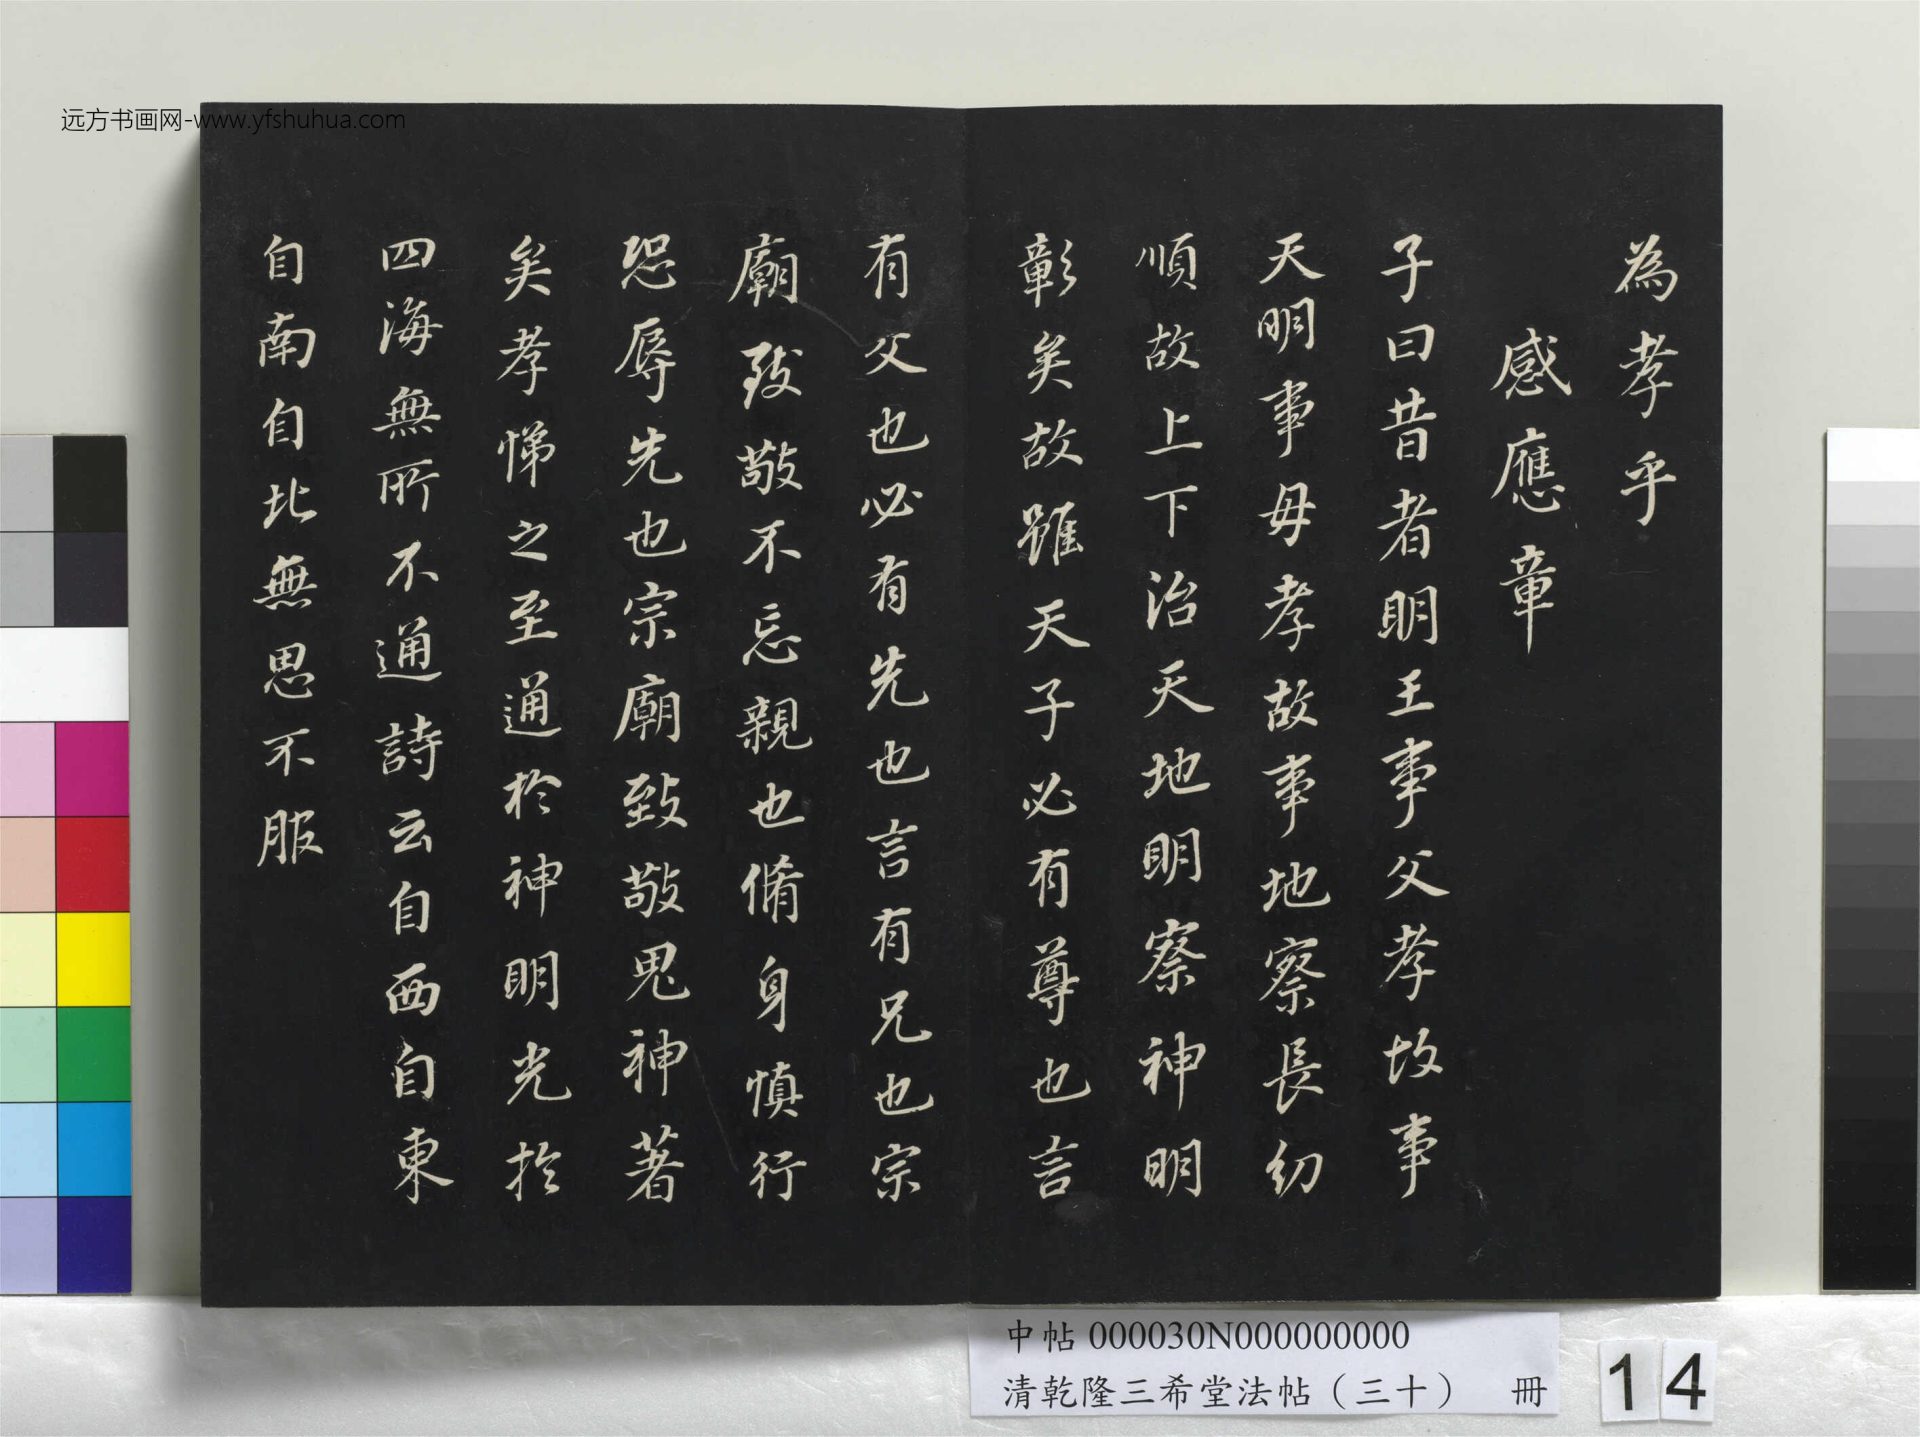 远方书画网-www.yfshuhua.com
為孝乎
感應章
子曰昔者明王事父孝故事
天明事母孝故事地察長幼
順故上下治天地明察神明
彰矣故雖天子必有尊也言
有父也必有先也言有兄也宗
廟致敬不忘親也脩身慎行
恐辱先也宗廟致敬鬼神著
矣孝悌之至通於神明光於
四海無所不通詩云自西自東
自南自北無思不服
中帖 000030N000000000
清乾隆三希堂法帖（三十） 冊
14